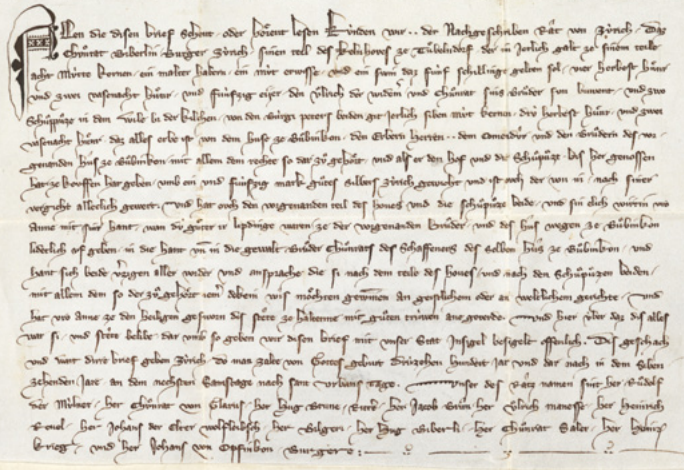 Allen die disen brief sehent oder hoͤrent lesen kúnden wir .. der Nachgeschriben Rat von Zúrich. Daz
Chuͦnrat Biberlin Burger Zúrich sinen teil des kelnhoves ze Túbelndorf der in Jerlich galt ze sinem teile
acht Mútte kernen. ein malter habern. ein mút erwsse. und ein swin daz fúnf schillinge gelten sol. vier herbest huͤnr
und zwei vasenacht huͤnr. und fúnfzig eiger. den uͦlrich der widem und Chuͦnrat sins Bruͦder sun buwent. und zwo
Schuͦppuͦze in dem wile bi der kilchen. von den Jerlich siben mút kernen. drú herbest huͤnr. und zwei
vasenacht huͤnr. daz alles erbe ist von dem huse ze Búbinkon. den Erbern herren .. dem Comendúr und den Bruͤdern des vor
genanden hus ze Búbinkon mit allem dem rechte so dar zuͦ gehoͤrt. und als er den hof und die Schuͦpuͦze. bis her genossen
hat ze kouffen hat geben. umb ein und fúnfzig mark guͦtes silbers Zúrich gewicht und ist och der von in. nach siner
vergicht allerlich gewert. und hat och den vorgenanden teil des hoves und die schuͦpuͦze beide. und sin elich wirtin vro
Anne mit sinr hant. wan dú guͤter ir lipdinge waren ze der vorgenanden bruͦder. und des hus wegen ze Búbinkon
lideclich uf geben. in die hant und in die gewalt. Bruͦder Chuͦnrats des Schaffeners des selben hus ze Búbinkon. und
hant sich beide verzigen aller wider und ansprache die si nach dem teile des hoves. und nach den Schuͦpuͦzen beiden.
mit allem dem so der zuͦ gehoͤrt iemer dekein wis moͤchten gewinnen an geistlichem oder an weltlichem gerichte. und
hat vro Anne ze den heiligen gesworn dis stete ze habenne mit guͦten trúwen ane geverde. und hier úber daz dis alles
war si. und stete belibe. dar umb so geben wir disen brief mit unser Stat Insigel besigelt offenlich. Dis geschach
und wart dirre brief geben Zúrich. do man zalte von Gottes geburt drúzehen hundert Jar und dar nach in dem Siben
zehenden Jare. an dem nechsten Samstage nach sant urbans tage. unser des Ratz namen sint her Ruͦdolf
der Múlner. her Chuͦnrat von Glarus. her Hug Brune. Ritter. her Jacob Brun. her uͦlrich manesse. her Heinrich
her Johans der Eltere wolfleibsch. her Bilgeri. her Hug Biberli. her Chuͦnrat Saler. her Heinrich
krieg. und her Johans von Opfinkon Burgere.